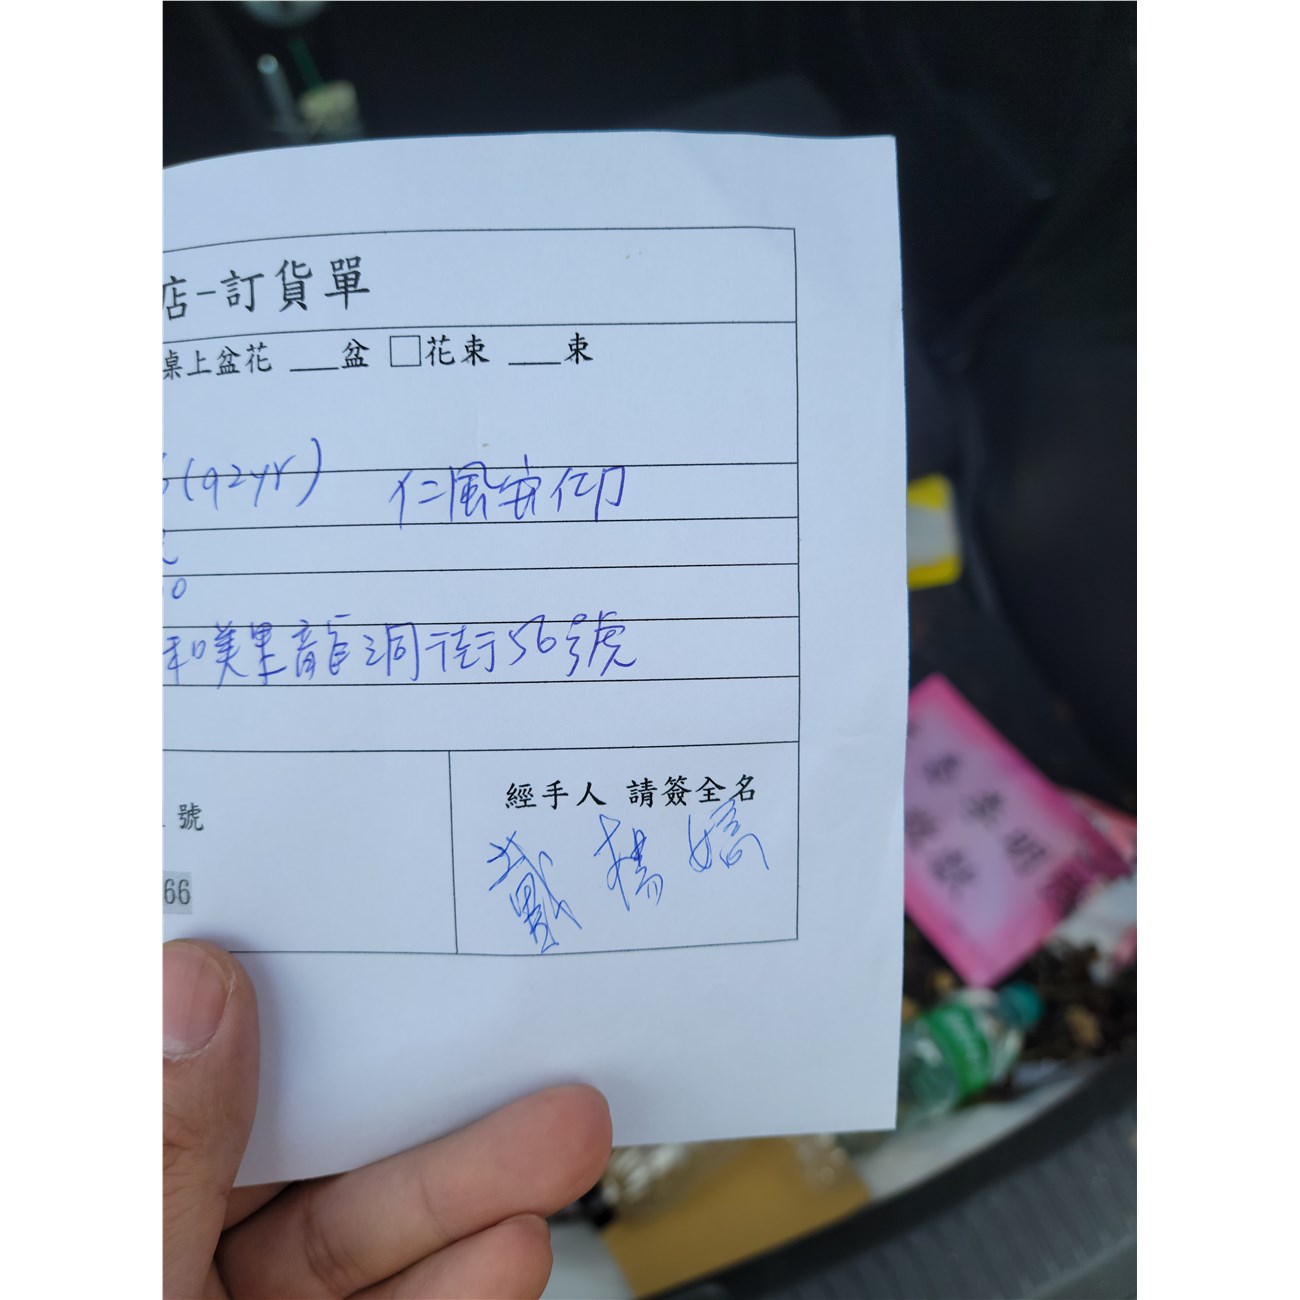 店-訂貨單
桌上盆花 ___盆 □花束 ___束
(92yr) 仁風安仰
0
和噗里龍洞街56號
經手人 請簽全名
號
戴 楊 嬌
66